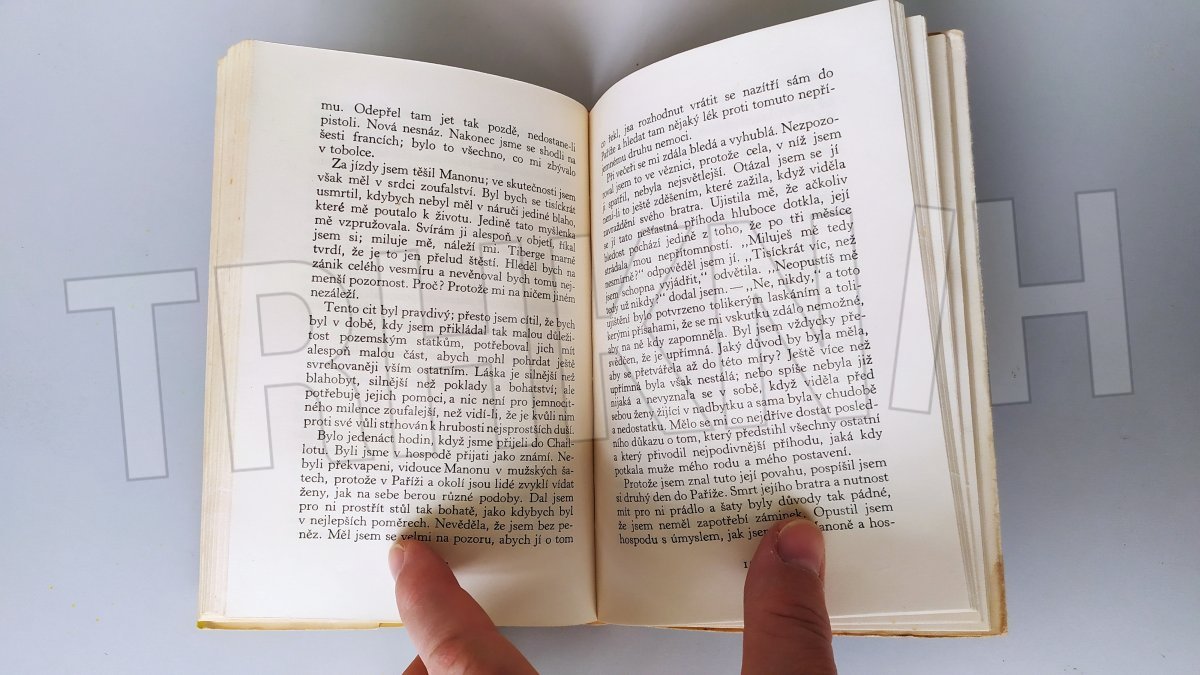 mu. Odepřel tam jet tak pozdě, nedostane-li
pistoli. Nová nesnáz. Nakonec jsme se shodli na
šesti francích; bylo to všechno, co mi zbývalo
v tobolce.
Za jízdy jsem těšil Manonu; ve skutečnosti jsem
však měl v srdci zoufalství. Byl bych se tisíckrát
usmrtil, kdybych nebyl měl v náruči jediné blaho,
které mě poutalo k životu. Jedině tato myšlenka
mě vzpružovala. Svírám ji alespoň v objetí, říkal
jsem si; miluje mě, náleží mi. Tiberge marně
tvrdí, že je to jen přelud štěstí. Hleděl bych na
zánik celého vesmíru a nevěnoval bych tomu nej-
menší pozornost. Proč? Protože mi na ničem jiném
nezáleží.
Tento cit byl pravdivý; přesto jsem cítil, že bych
byl v době, kdy jsem přikládal tak malou důleži-
tost pozemským statkům, potřeboval jich mít
alespoň malou část, abych mohl pohrdat ještě
svrchovaněji vším ostatním. Láska je silnější než
blahobyt, silnější než poklady a bohatství; ale
potřebuje jejich pomoci, a nic není pro jemnocit-
ného milence zoufalejší, než vidí-li, že je kvůli nim
proti své vůli strhován k hrubosti nejsprostších duší.
Bylo jedenáct hodin, když jsme přijeli do Chail-
lotu. Byli jsme v hospodě přijati jako známí. Ne-
byli překvapeni, vidouce Manonu v mužských ša-
tech, protože v Paříži a okolí jsou lidé zvyklí vídat
ženy, jak na sebe berou různé podoby. Dal jsem
pro ni prostřít stůl tak bohatě, jako kdybych byl
v nejlepších poměrech. Nevěděla, že jsem bez pe-
něz. Měl jsem se velmi na pozoru, abych jí o tom
co řekl, jsa rozhodnut vrátit se nazítří sám do
Paříže a hledat tam nějaký lék proti tomuto nepří-
jemnému druhu nemoci.
Při večeři se mi zdála bledá a vyhublá. Nezpozo-
roval jsem to ve věznici, protože cela, v níž jsem
ji spatřil, nebyla nejsvětlejší. Otázal jsem se jí
není-li to ještě zděšením, které zažila, když viděla
zavraždění svého bratra. Ujistila mě, že ačkoliv
se jí tato nešťastná příhoda hluboce dotkla, její
bledost pochází jedině z toho, že po tři měsíce
strádala mou nepřítomností. „Miluješ mě tedy
nesmírně?“ odpověděl jsem jí. „Tisíckrát víc, než
jsem schopna vyjádřit,“ odvětila. „Neopustíš mě
tedy už nikdy?“ dodal jsem. — „Ne, nikdy,“ a toto
ujištění bylo potvrzeno tolikerým laskáním a toli-
kerými přísahami, že se mi vskutku zdálo nemožné,
aby na ně kdy zapomněla. Byl jsem vždycky pře-
svědčen, že je upřímná. Jaký důvod by byla měla,
aby se přetvářela až do této míry? Ještě více než
upřímná byla však nestálá; nebo spíše nebyla již
nijaká a nevyznala se v sobě, když viděla před
sebou ženy žijící v nadbytku a sama byla v chudobě
a nedostatku. Mělo se mi co nejdříve dostat posled-
ního důkazu o tom, který předstihl všechny ostatní
a který přivodil nejpodivnější příhodu, jaká kdy
potkala muže mého rodu a mého postavení.
Protože jsem znal tuto její povahu, pospíšil jsem
si druhý den do Paříže. Smrt jejího bratra a nutnost
mít pro ni prádlo a šaty byly důvody tak pádné,
že jsem neměl zapotřebí záminek. Opustil jsem
hospodu s úmyslem, jak jsem Manoně a hos-